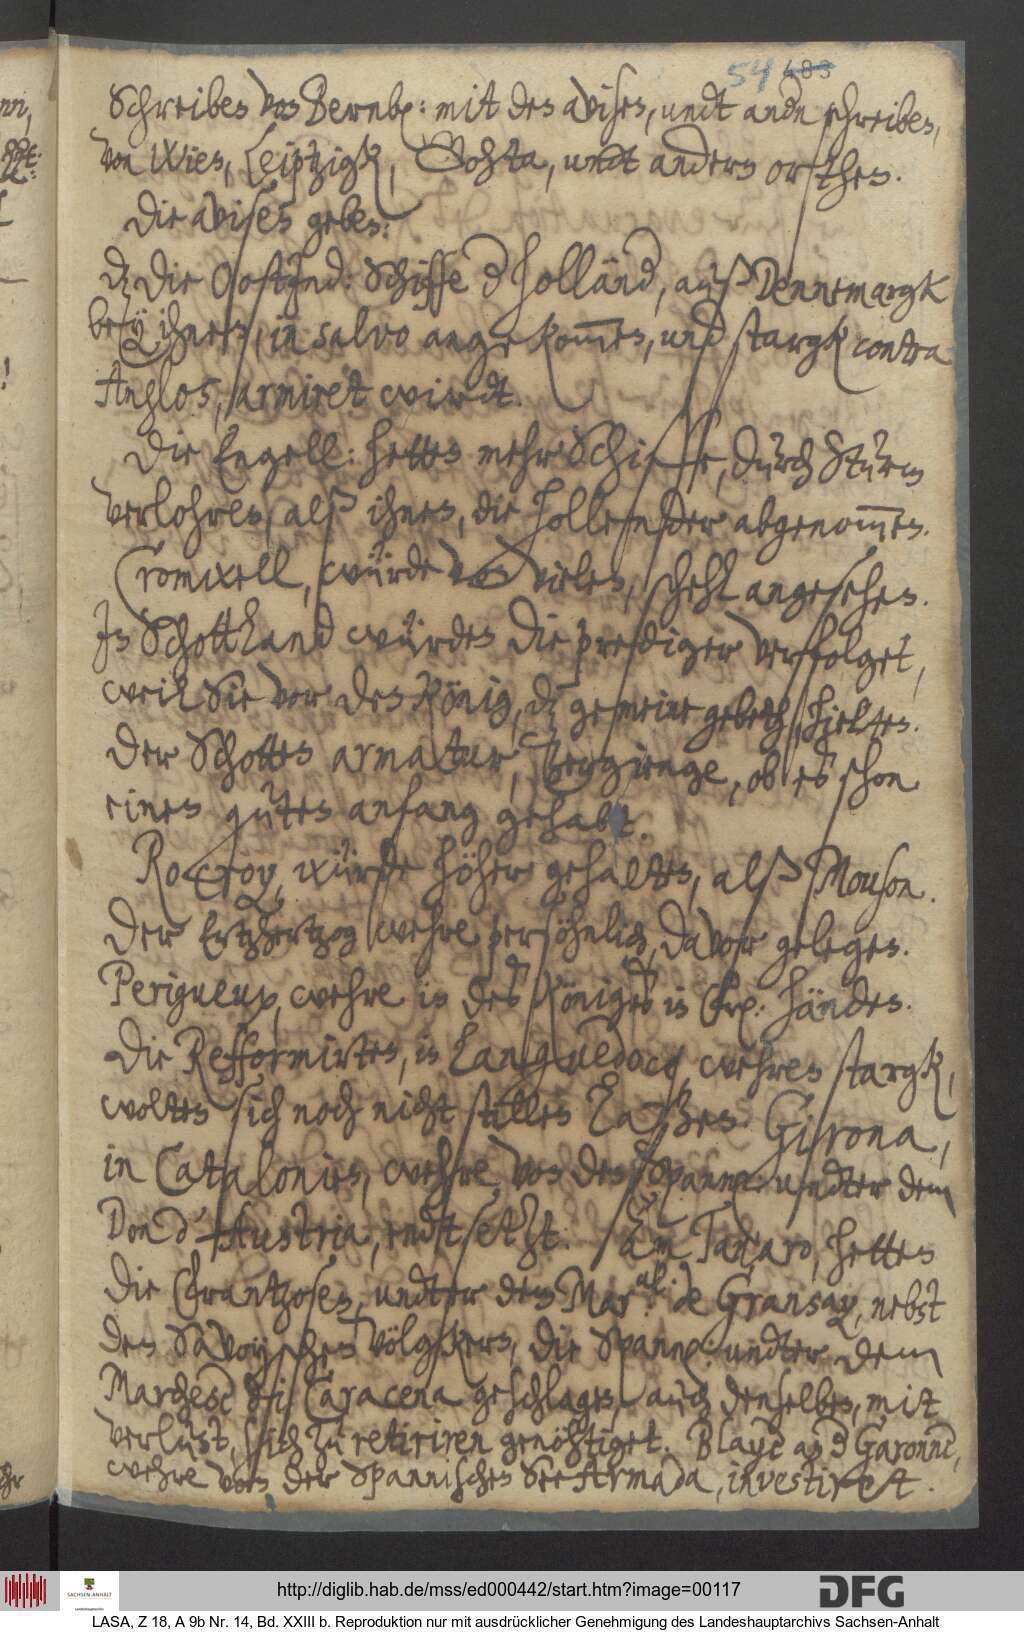 54 483
Schreiben von Bernb: mit den avisen, undt andn schreiben,
von Wien, Leiptzigk, Gohta, undt andern orthen.
Die avisen geben:
dz die OostInd: Schiffe d holländ, auß Dennemargk
bey ihnen, in salvo angekommen, und stargk contra
Anglos, armiret wirdt.
Die Engell: hetten mehr Schiffe, durch Sturm
verlohren, alß ihnen, die Hollender abgenommen.
Cromwell, würde von vielen, schehl angesehen.
In Schottland würden die prediger verfolget,
weil Sie vor den König, dz gemeine gebeth, hielten.
Der Schotten armatur, zergienge, ob es schon
einen guten anfang gehabt.
Rocroy, würde höher gehalten, alß Mouson.
Der Ertzhertzog wehre persöhnlich, davor gelegen.
Perigueux, wehre in des Königes in Frx: händen.
Die Refformirten, in Languedocq wehren stargk,
wolten sich noch nicht stillen laßen. Girona,
in Catalonien, wehre von den Spann: undter dem
Don d'Austria, endtsetzt. Am Tanaro, hetten
die Frantzosen, undter dem Mar:al: de Gransay, nebst
den Savoyschen völgkern, die Spann: undter dem
Marchese di Caracena geschlagen, auch denselben, mit
verlust, sich zu retiriren genöhtiget. Blaye an d Garonne,
wehre von der Spannischen See Armada, investiret.
http://diglib.hab.de/mss/ed000442/start.htm?image=00117
SACHSEN-ANHALT
DFG
LASA, Z 18, A 9b Nr. 14, Bd. XXIII b. Reproduktion nur mit ausdrücklicher Genehmigung des Landeshauptarchivs Sachsen-Anhalt